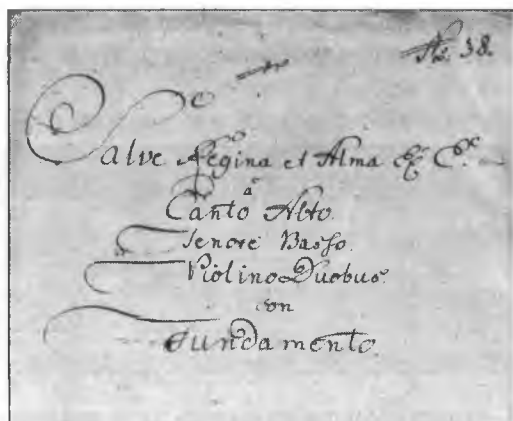 No. 38.
Salve Regina et Alma &c &c.
a
Canto Alto.
Tenore Basso.
Violino Duobus.
con
Fundamento.